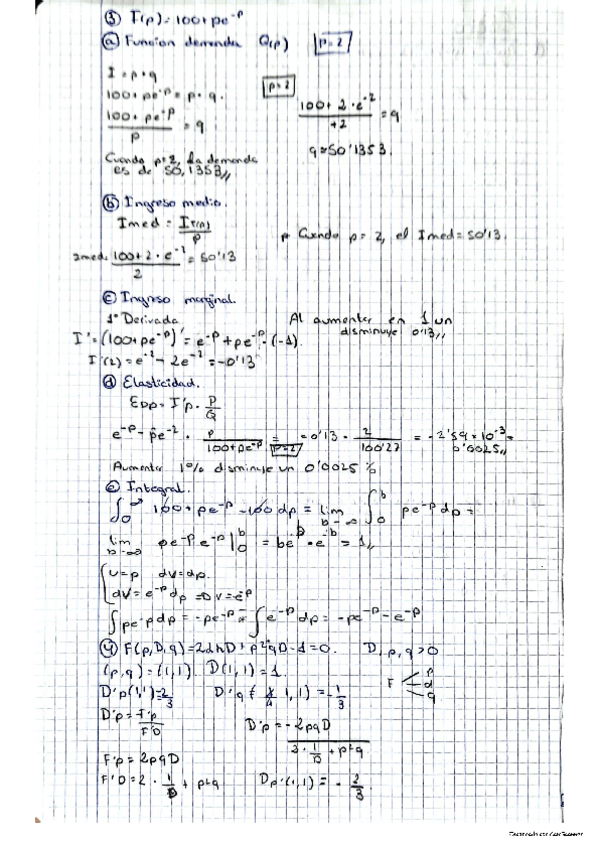 ③ I(p)=100+pe^-p
ⓐ Funcion demanda Q(p) p=2
I = p·q
100+pe^-p = p·q.
100+pe^-p / p = q
p=2
100+2·e^-2 / +2 = q
q≈50'1353.
Cuando p=2, la demanda
es de 50,1353,,
ⓑ Ingreso medio.
Imed = I(p) / p
Cuando p=2, el Imed=50'13.
Imed 100+2·e^-2 / 2 = 50'13
ⓒ Ingreso marginal.
1ª Derivada
I'=(100+pe^-p)' = e^-p+pe^-p·(-1).
I'(2)=e^-2-2e^-2=-0'13
Al aumentar en 1 un
disminuye 0'13,,
ⓓ Elasticidad.
EDp=I'p·P/Q
e^-p-pe^-2 · p / 100+pe^-p p=2 = -0'13 · 2 / 100'27 = -2'59×10^-3=
0'0025,,
Aumentar 1% disminuye un 0'0025%
ⓔ Integral.
∫0^∞ 100+pe^-p-100 dp = lim b→∞ ∫0^b pe^-p dp =
lim b→∞ pe^-p e^-p |0^b = be^-b·e^-b = 1,,
u=p dv=dp.
dv=e^-p dp =D v=e^-p
∫pe^-p dp = -pe^-p ∫e^-p dp = -pe^-p-e^-p
④ F(p,D,q)=2lnD+p²qD-1=0. D,p,q>0
(p,q)=(1,1) D(1,1)=1.
F p d q
D'p(1,1)=2/3 D'q (1,1)=-1/3
D'p=F'p / F'D
D'p=-2pqD / 2·1/D+p²q
F'p=2pqD
F'D=2·1/D+p²q Dp'(1,1)=-2/3.